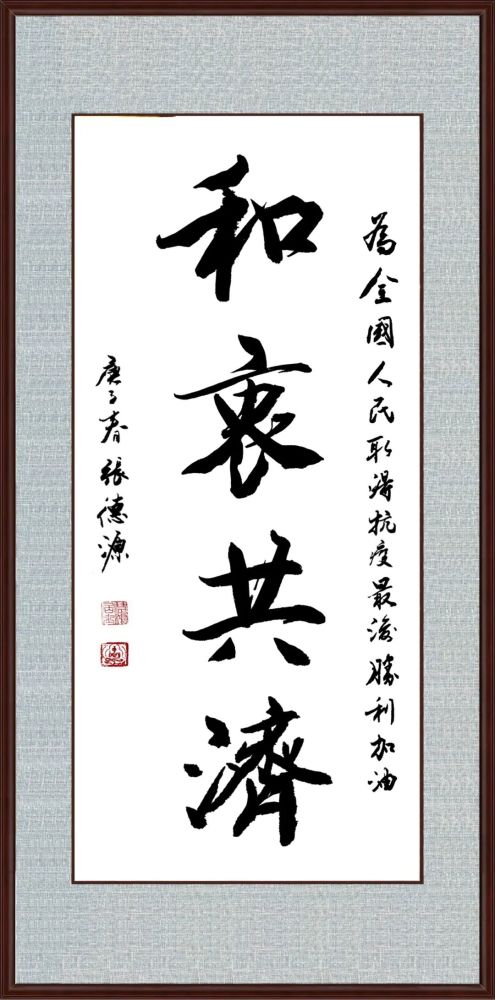 為全國人民取得抗疫最後勝利加油
和衷共濟
庚子春 張德源